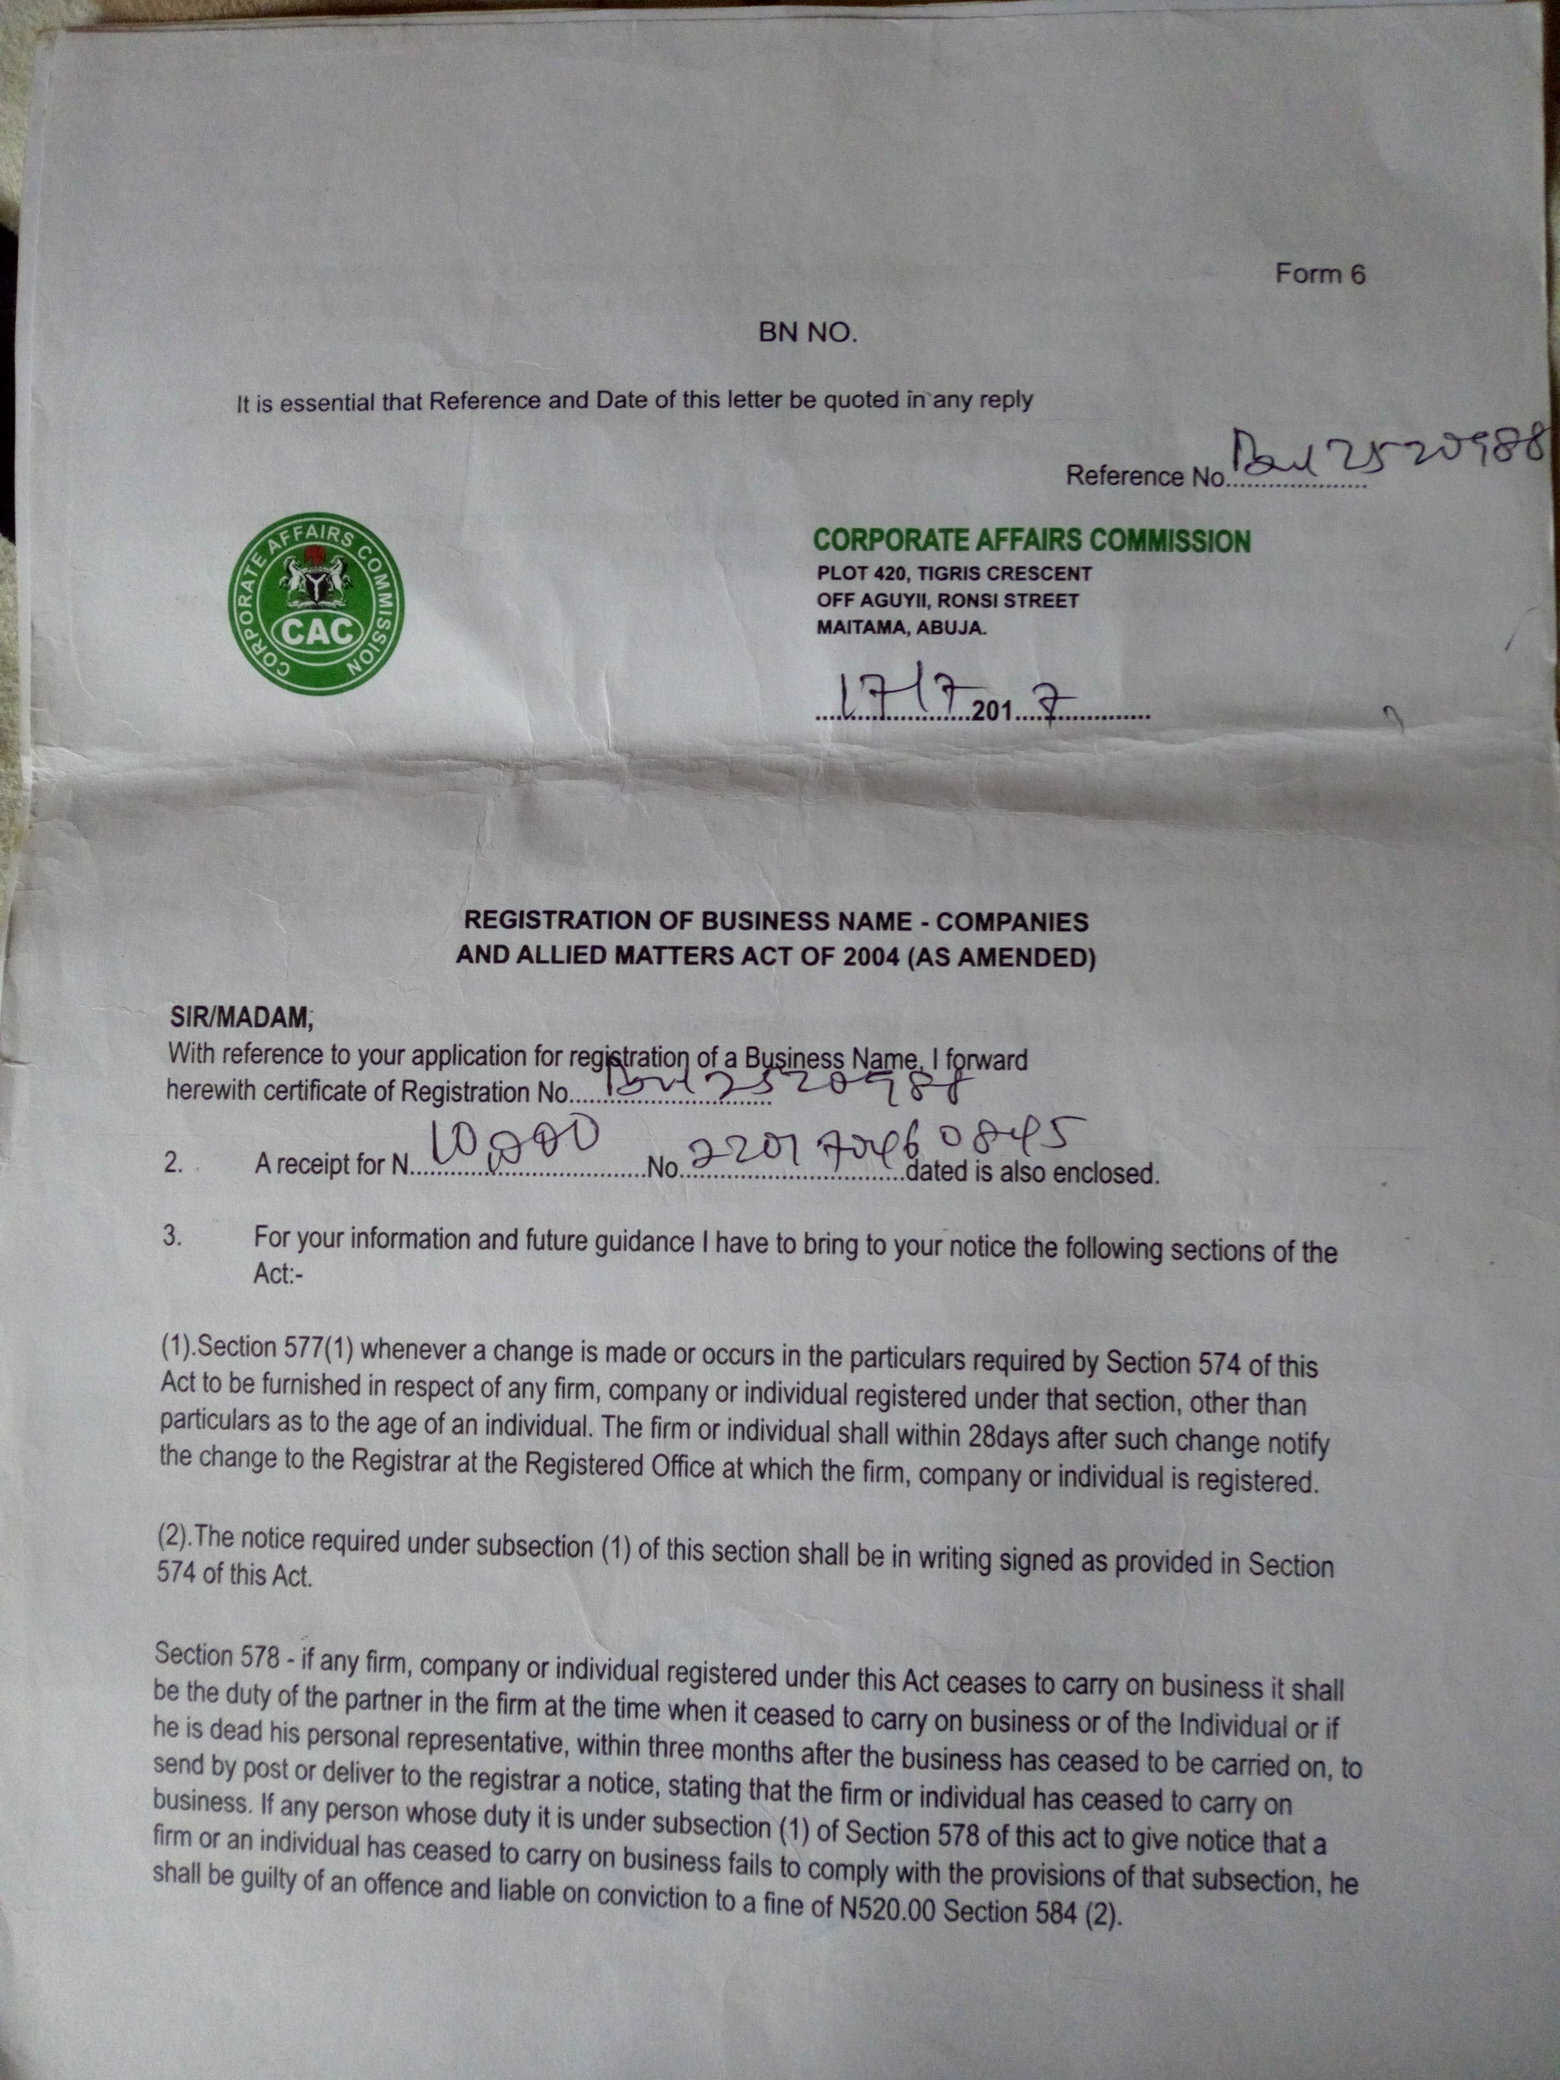 Form 6
BN NO.
It is essential that Reference and Date of this letter be quoted in any reply
Reference No.................... 2520988
CORPORATE AFFAIRS COMMISSION
CAC
CORPORATE AFFAIRS COMMISSION
PLOT 420, TIGRIS CRESCENT
OFF AGUYII, RONSI STREET
MAITAMA, ABUJA.
17/7 201 7
REGISTRATION OF BUSINESS NAME - COMPANIES
AND ALLIED MATTERS ACT OF 2004 (AS AMENDED)
SIR/MADAM,
With reference to your application for registration of a Business Name, I forward
herewith certificate of Registration No. 2520988
2. A receipt for N. 10,000 No. dated is also enclosed.
3. For your information and future guidance I have to bring to your notice the following sections of the
Act:-
(1).Section 577(1) whenever a change is made or occurs in the particulars required by Section 574 of this
Act to be furnished in respect of any firm, company or individual registered under that section, other than
particulars as to the age of an individual. The firm or individual shall within 28days after such change notify
the change to the Registrar at the Registered Office at which the firm, company or individual is registered.
(2).The notice required under subsection (1) of this section shall be in writing signed as provided in Section
574 of this Act.
Section 578 - if any firm, company or individual registered under this Act ceases to carry on business it shall
be the duty of the partner in the firm at the time when it ceased to carry on business or of the Individual or if
he is dead his personal representative, within three months after the business has ceased to be carried on, to
send by post or deliver to the registrar a notice, stating that the firm or individual has ceased to carry on
business. If any person whose duty it is under subsection (1) of Section 578 of this act to give notice that a
firm or an individual has ceased to carry on business fails to comply with the provisions of that subsection, he
shall be guilty of an offence and liable on conviction to a fine of N520.00 Section 584 (2).